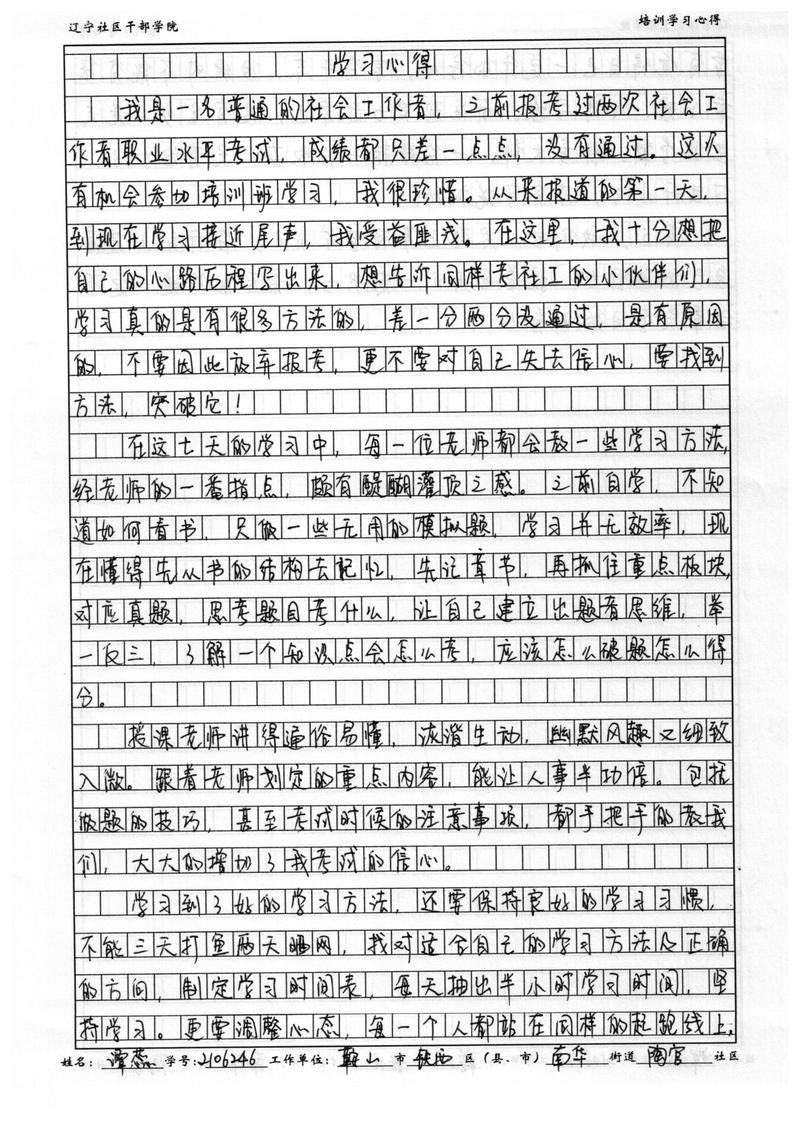 辽宁社区干部学院 培训学习心得
学习心得
我是一名普通的社会工作者，之前报考过两次社会工
作者职业水平考试，成绩都只差一点点，没有通过。这次
有机会参加培训班学习，我很珍惜。从来报道的第一天，
到现在学习接近尾声，我受益匪浅。在这里，我十分想把
自己的心路历程写出来，想告诉同样考社工的小伙伴们，
学习真的是有很多方法的，差一分两分没通过，是有原因
的，不要因此放弃报考，更不要对自己失去信心，要找到
方法，突破它！
在这七天的学习中，每一位老师都会教一些学习方法，
经老师的一番指点，颇有醍醐灌顶之感。之前自学，不知
道如何看书，只做一些无用的模拟题，学习并无效率，现
在懂得先从书的结构去记忆，先记章节，再抓住重点板块，
对应真题，思考题目考什么，让自己建立出题者思维，举
一反三，了解一个知识点会怎么考，应该怎么破题怎么得
分。
授课老师讲得通俗易懂，诙谐生动，幽默风趣又细致
入微。跟着老师划定的重点内容，能让人事半功倍。包括
做题的技巧，甚至考试时候的注意事项，都手把手的教我
们，大大的增加了我考试的信心。
学习到了好的学习方法，还要保持良好的学习习惯，
不能三天打鱼两天晒网，找对适合自己的学习方法及正确
的方向，制定学习时间表，每天抽出半小时学习时间，坚
持学习。更要调整心态，每一个人都站在同样的起跑线上，
姓名：谭蕊 学号：2106246 工作单位：鞍山 市 铁西 区（县、市） 南华 街道 陶官 社区